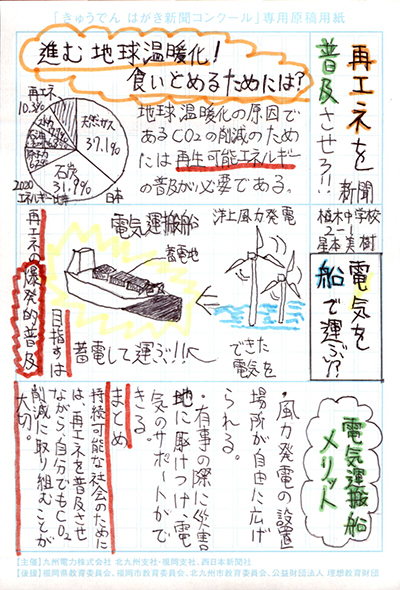 「きゅうでん はがき新聞コンクール」専用原稿用紙
再エネを
普及させろ!!
新聞
植木中学校
2-1
星本美樹
進む地球温暖化!
食いとめるためには?
再エネ
10.3%
天然ガス
37.1%
石炭
31.9%
2020
日本
地球温暖化の原因で
あるCO₂の削減のため
には再生可能エネルギー
の普及が必要である。
電気を
船で運ぶ!?
電気運搬船
蓄電池
洋上風力発電
できた
電気を
蓄電して運ぶ!!
目指すは
再エネの爆発的普及
電気運搬船
メリット
・風力発電の設置
場所が自由に広げ
られる。
・有事の際に災害
地に駆けつけ、電
気のサポートがで
きる。
まとめ
持続可能な社会のために
は、再エネを普及させ
ながら、自分でもCO₂
削減に取り組むことが
大切。
【主催】九州電力株式会社 北九州支社・福岡支社、西日本新聞社
【後援】福岡県教育委員会、福岡市教育委員会、北九州市教育委員会、公益財団法人 理想教育財団